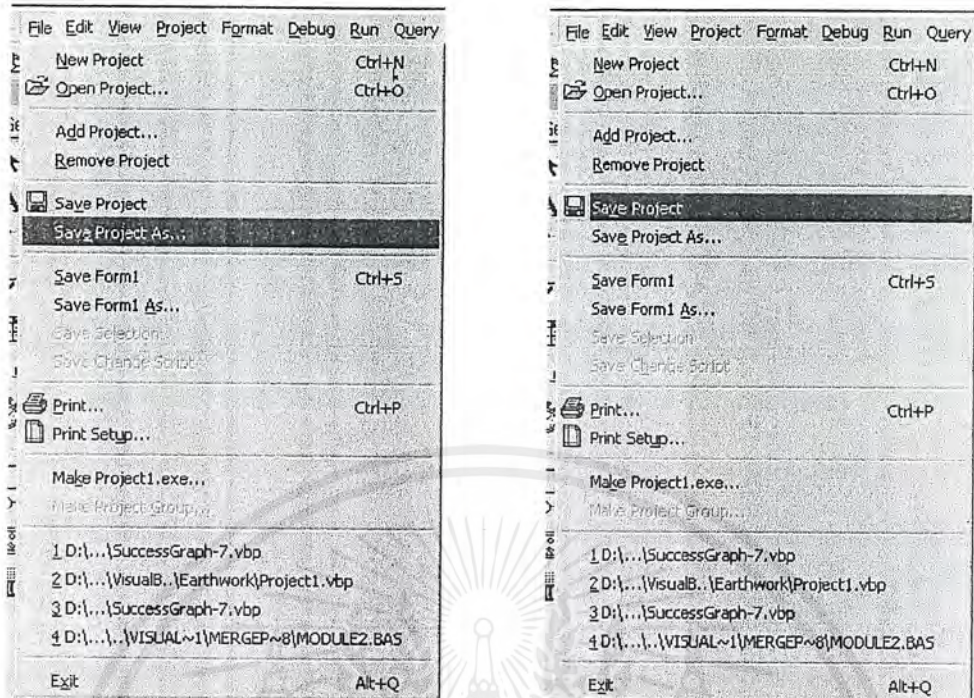 File Edit View Project Format Debug Run Query
New Project Ctrl+N
Open Project... Ctrl+O
Add Project...
Remove Project
Save Project
Save Project As...
Save Form1 Ctrl+S
Save Form1 As...
Save Selection
Save Change Script
Print... Ctrl+P
Print Setup...
Make Project1.exe...
Make Project Group...
1 D:\...\SuccessGraph-7.vbp
2 D:\...\VisualB..\Earthwork\Project1.vbp
3 D:\...\SuccessGraph-7.vbp
4 D:\...\..\VISUAL~1\MERGEP~8\MODULE2.BAS
Exit Alt+Q
File Edit View Project Format Debug Run Query
New Project Ctrl+N
Open Project... Ctrl+O
Add Project...
Remove Project
Save Project
Save Project As...
Save Form1 Ctrl+S
Save Form1 As...
Save Selection
Save Change Script
Print... Ctrl+P
Print Setup...
Make Project1.exe...
Make Project Group...
1 D:\...\SuccessGraph-7.vbp
2 D:\...\VisualB..\Earthwork\Project1.vbp
3 D:\...\SuccessGraph-7.vbp
4 D:\...\..\VISUAL~1\MERGEP~8\MODULE2.BAS
Exit Alt+Q